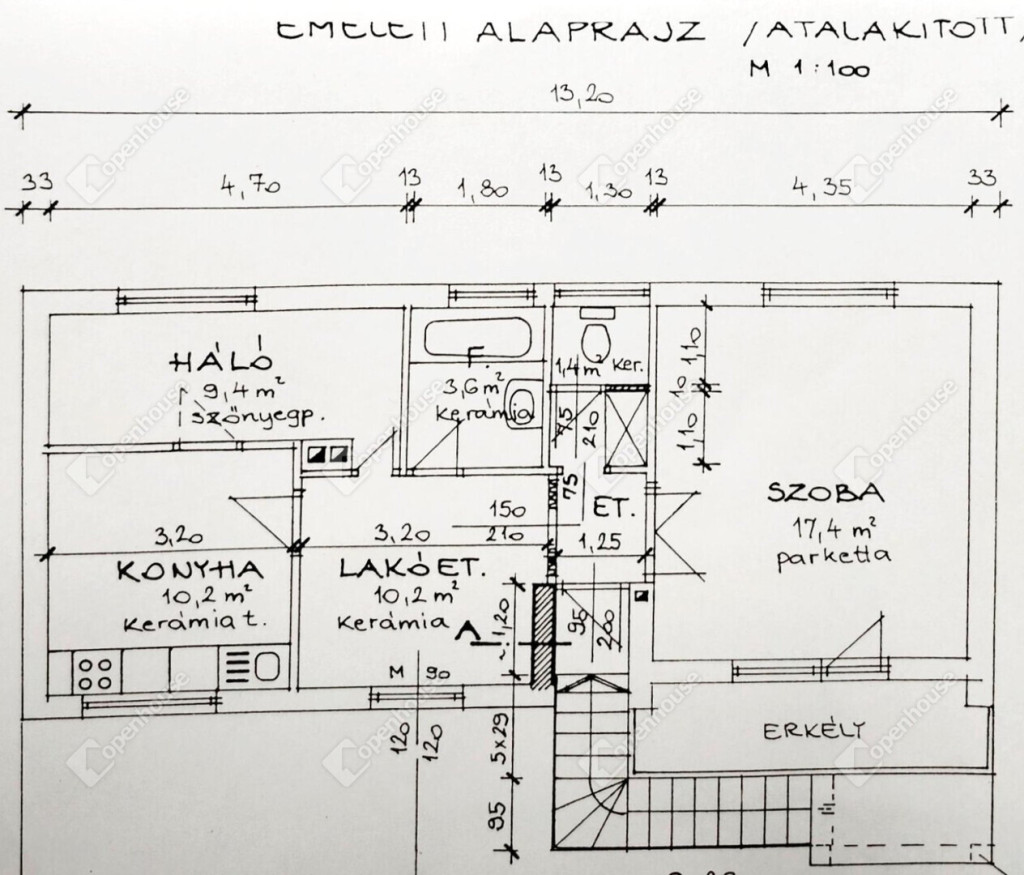 EMELETI ALAPRAJZ /ÁTALAKÍTOTT/
M 1:100
13,20
33 4,70 13 1,80 13 1,30 13 4,35 33
HÁLÓ
9,4 m²
szőnyegp.
F.
3,6 m²
kerámia
1,4 m² ker.
75
210
1,10
10
1,10
75
ET.
1,25
150
210
SZOBA
17,4 m²
parketta
3,20
KONYHA
10,2 m²
kerámia t.
3,20
LAKÓET.
10,2 m²
kerámia
A
~1,20
95
200
M 90
120
120
5x29
95
ERKÉLY
openhouse